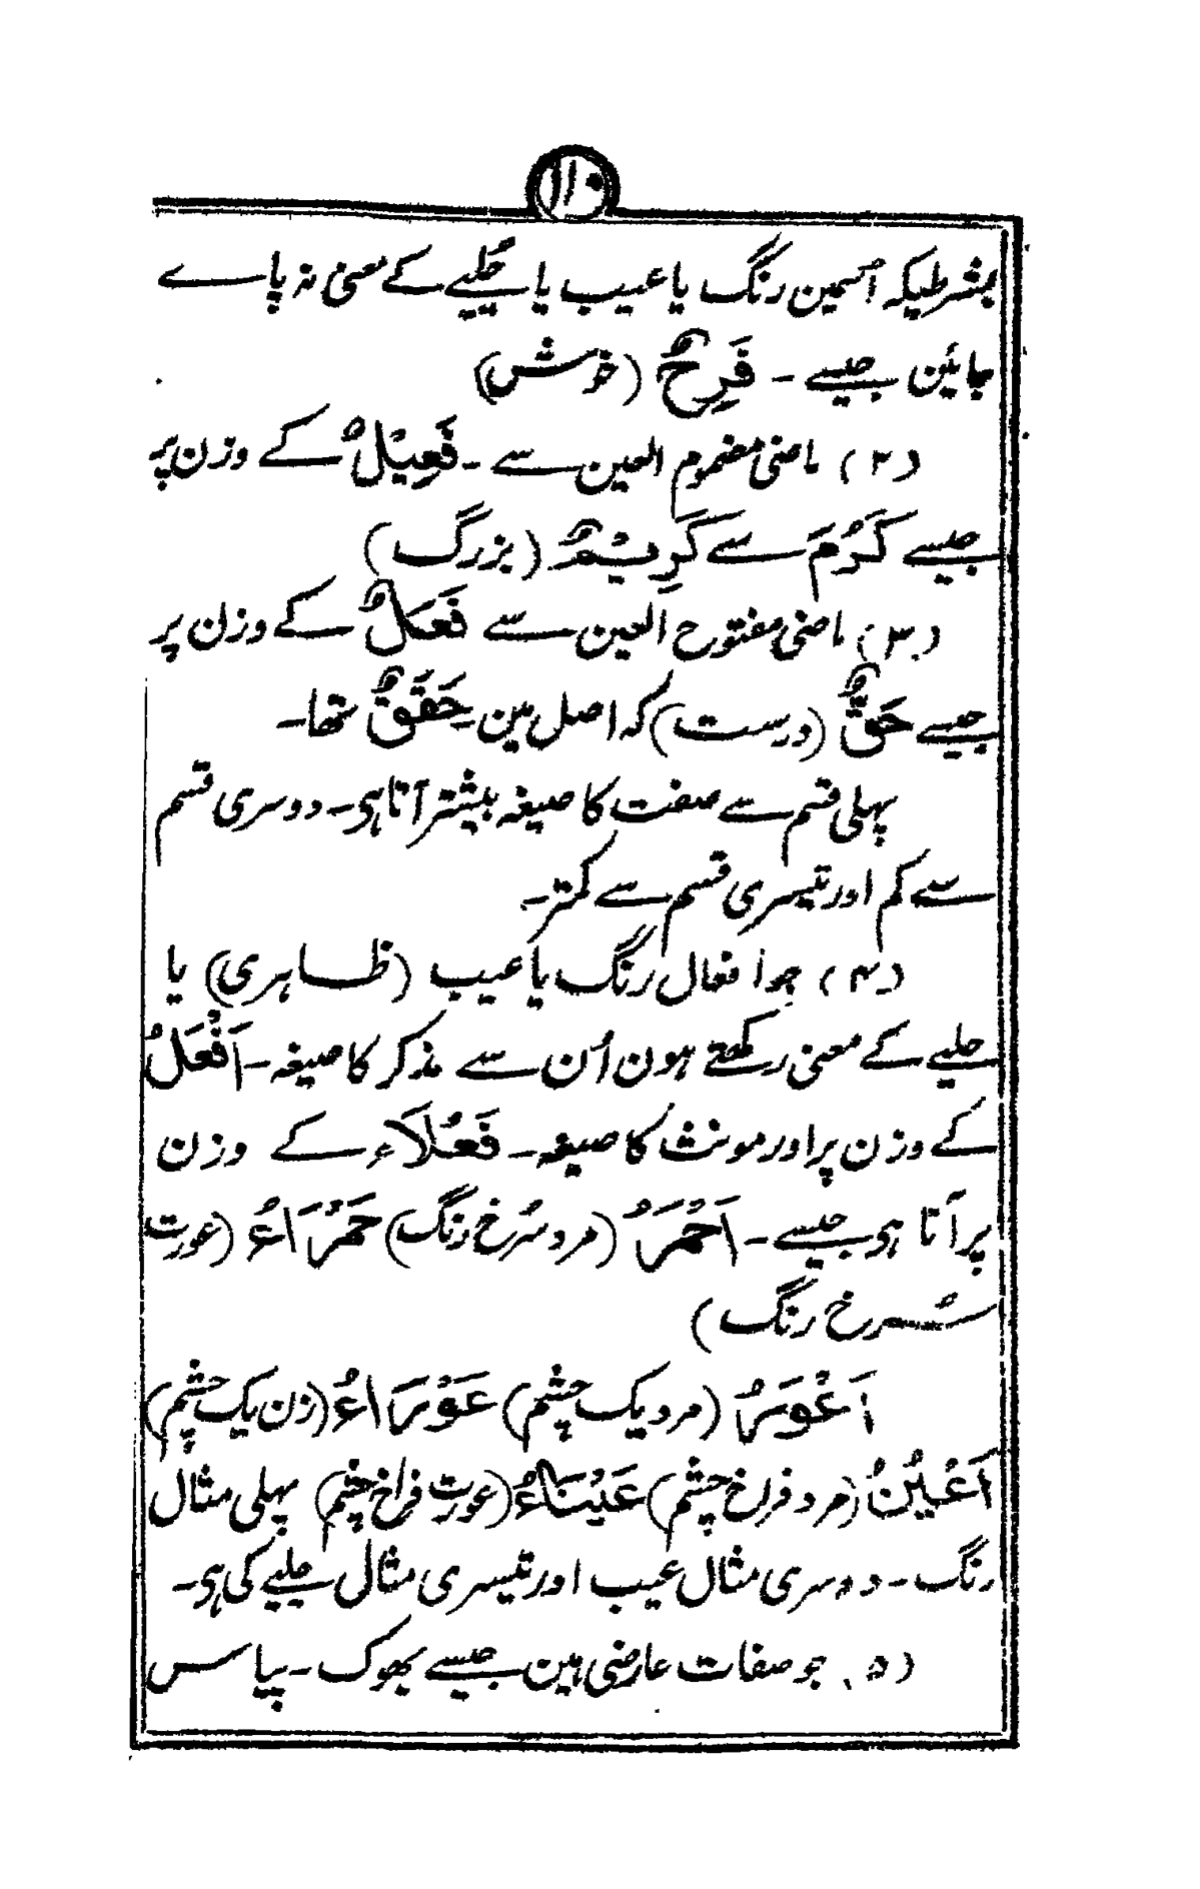 ۱۱۰
بشرطیکہ اسمین رنگ یا عیب یا حُلیے کے معنی نہ پاے
جائین جیسے - فَرِحٌ (خوش)
(۲) ماضی مضموم العین سے - فَعِیْلٌ کے وزن پر
جیسے کَرُمَ سے کَرِیْمٌ (بزرگ)
(۳) ماضی مفتوح العین سے فَعَلٌ کے وزن پر
جیسے حَقٌّ (درست) کہ اصل مین حَقَقٌ تھا -
پہلی قسم سے صفت کا صیغہ بیشتر آتا ہی - دوسری قسم
سے کم اور تیسری قسم سے کمتر -
(۴) جو افعال رنگ یا عیب (ظاہری) یا
حلیے کے معنی رکھتے ہون اُن سے مذکر کا صیغہ - اَفْعَلُ
کے وزن پر اور مونث کا صیغہ - فَعْلَاء کے وزن
پر آتا ہی جیسے - اَحْمَرُ (مرد سُرخ رنگ) حَمْرَاءُ (عورت
سُرخ رنگ)
اَعْوَرُ (مرد یک چشم) عَوْرَاءُ (زن یک چشم)
اَعْیَنُ (مرد فراخ چشم) عَیْنَاءُ (عورت فراخ چشم) پہلی مثال
رنگ - دوسری مثال عیب اور تیسری مثال حلیے کی ہی -
(۵) جو صفات عارضی ہین جیسے بھوک - پیاس